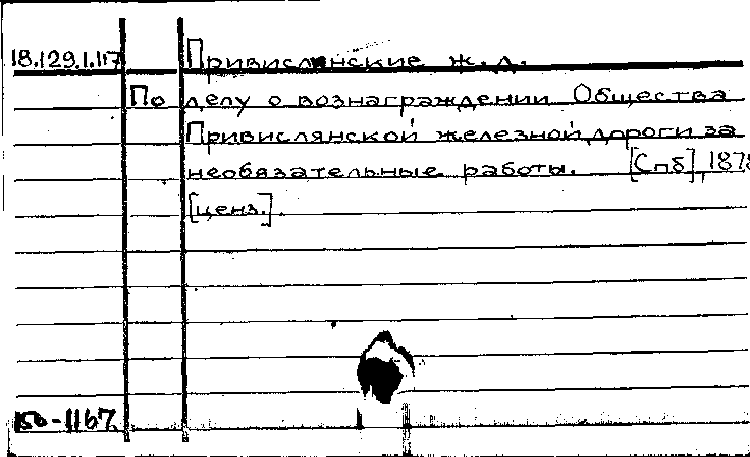 18.129.1.117 Привислянские ж.д.
По делу о вознаграждении Общества
Привислянской железной дороги за
необязательные работы. [Спб], 1878
[ценз.].
150-1167